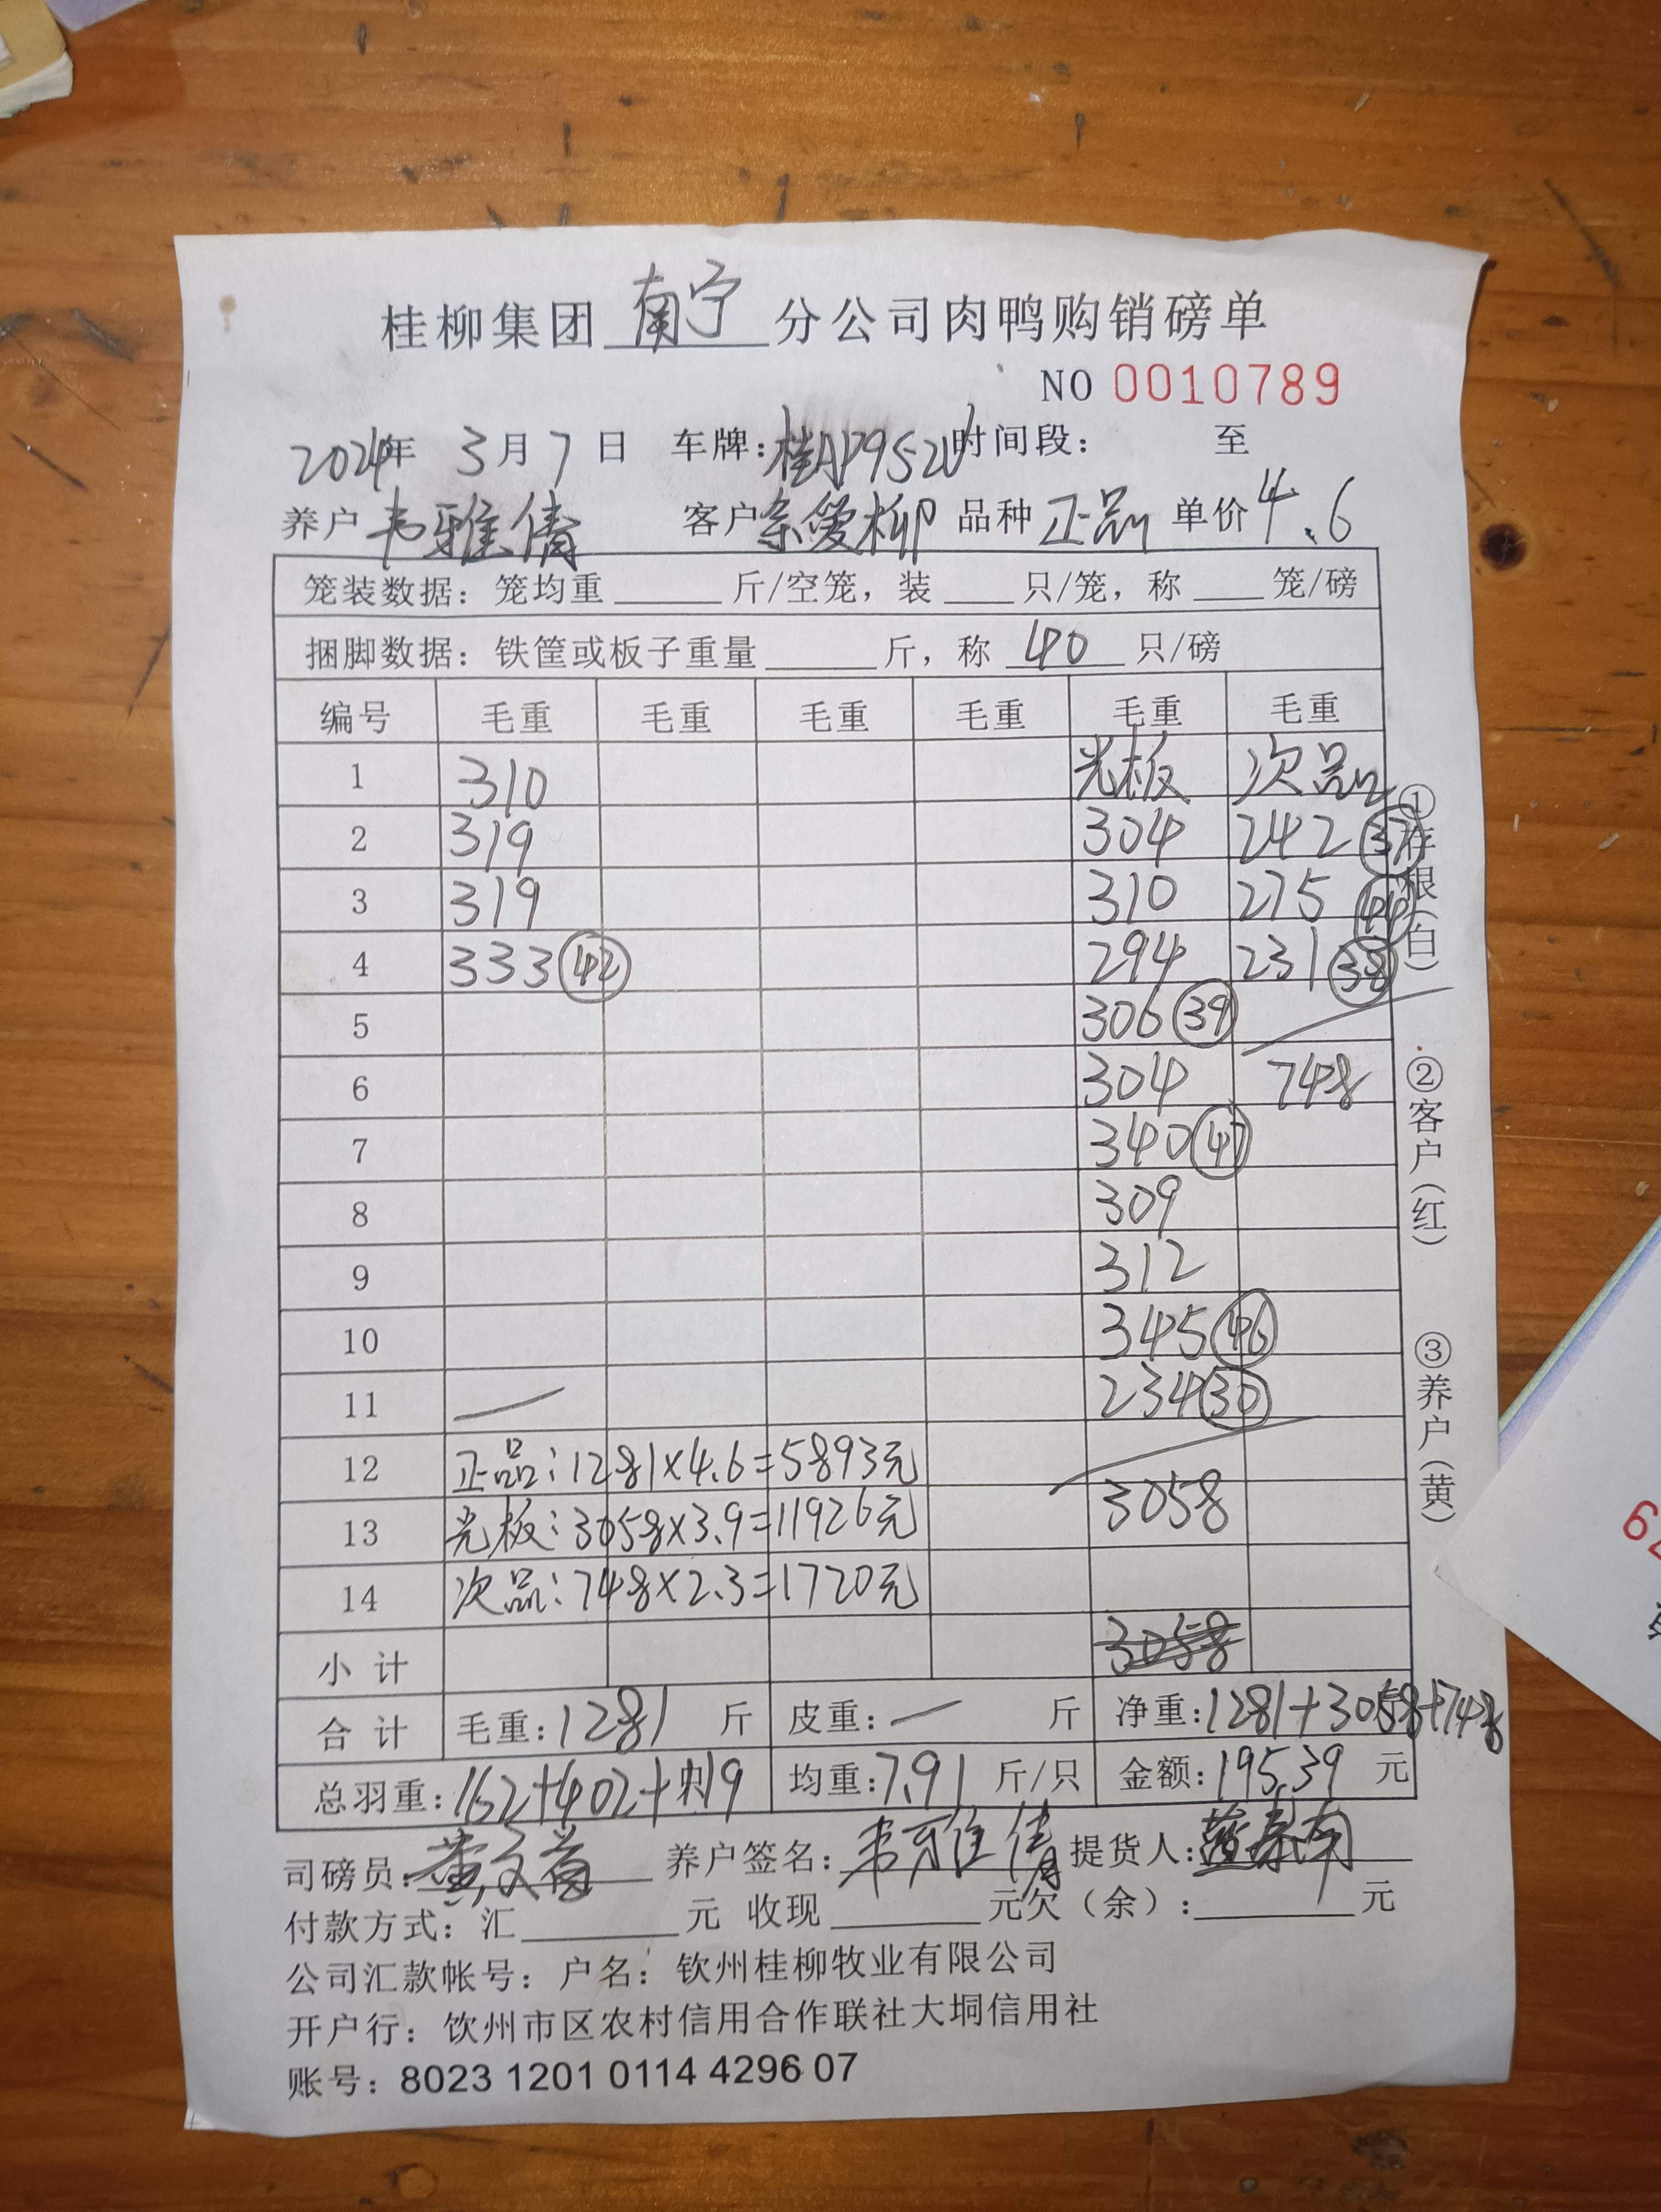 桂柳集团 南宁 分公司肉鸭购销磅单
NO 0010789
2024年 3月7日 车牌：桂AP952 时间段： 至
养户 韦雅倩 客户 爱柳 品种 正品 单价 4.6
笼装数据：笼均重 斤/空笼，装 只/笼，称 笼/磅
捆脚数据：铁筐或板子重量 斤，称 40 只/磅
编号 毛重 毛重 毛重 毛重 毛重 毛重
1 310 光板 次品
2 319 304 242 37
3 319 310 275 44
4 333 42 294 231 38
5 306 39
6 304 748
7 340
8 309
9 312
10 345 46
11 — 234 30
12 正品：1281×4.6=5893元
13 光板：3058×3.9=11926元 3058
14 次品：748×2.3=1720元
小计 3058
合计 毛重：1281 斤 皮重：— 斤 净重：1281+3058+748
总羽重：162+402+119 均重：7.91 斤/只 金额：19539 元
司磅员： 养户签名：韦雅倩 提货人：
付款方式：汇 元 收现 元欠（余）： 元
公司汇款帐号：户名：钦州桂柳牧业有限公司
开户行：饮州市区农村信用合作联社大垌信用社
账号：8023 1201 0114 4296 07
①存根（白）
②客户（红）
③养户（黄）